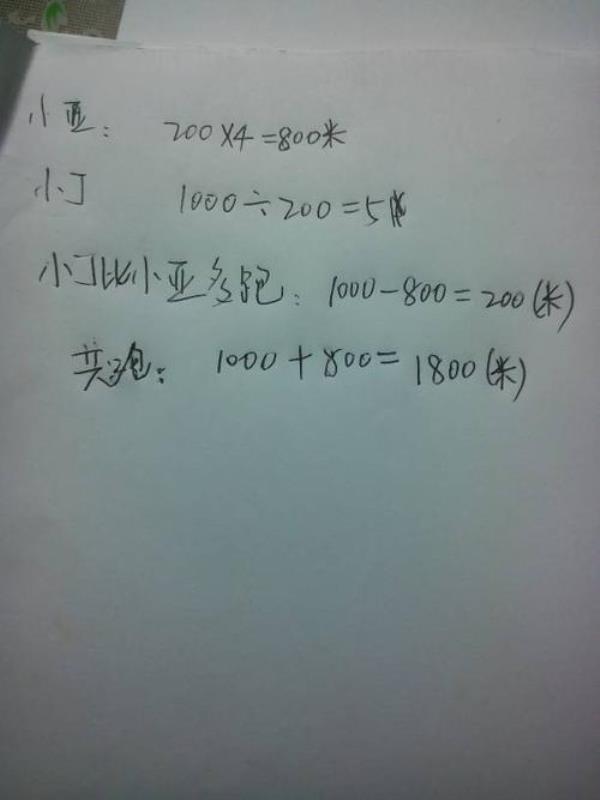 小亚: 200×4=800米
小丁 1000÷200=5
小丁比小亚多跑: 1000-800=200(米)
共跑: 1000+800=1800(米)